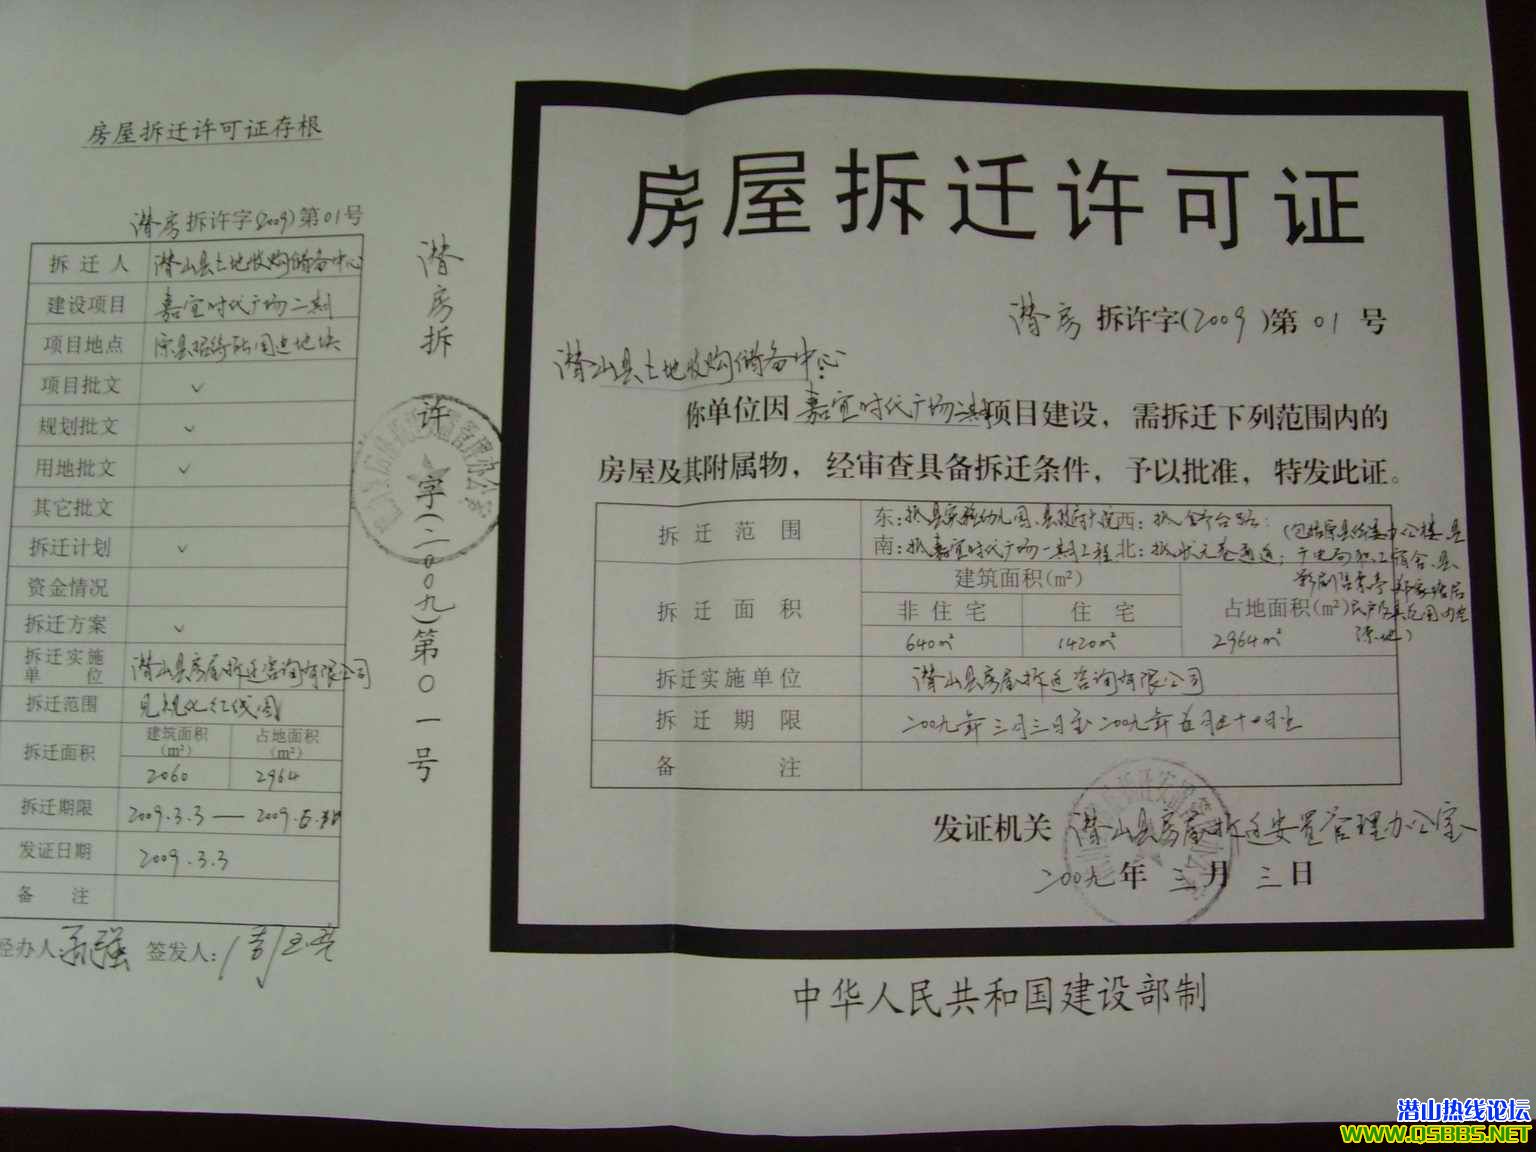 房屋拆迁许可证存根
潜房拆许字(2009)第01号
拆迁人 潜山县土地收购储备中心
建设项目 嘉宜时代广场二期
项目地点 周边地块
项目批文 ✓
规划批文 ✓
用地批文 ✓
其它批文
拆迁计划 ✓
资金情况
拆迁方案 ✓
拆迁实施单位 潜山县房屋拆迁咨询有限公司
拆迁范围 见规化红线图
拆迁面积 建筑面积(m²) 占地面积(m²)
2060 2964
拆迁期限 2009.3.3—2009.5.
发证日期 2009.3.3
备注
经办人 签发人:
潜房拆许字(二00九)第0一号
房屋拆迁许可证
潜房拆许字(2009)第01号
潜山县土地收购储备中心
你单位因嘉宜时代广场二期项目建设，需拆迁下列范围内的
房屋及其附属物，经审查具备拆迁条件，予以批准，特发此证。
拆迁范围 东:抵县实验幼儿园、县政府大院西:抵舒台路:
南:抵嘉宜时代广场一期工程北:抵状元巷通道;
(包括原县 办公楼、县
广电局职工宿舍、县
影剧院
居
民户及其范围内空
余地)
拆迁面积 建筑面积(m²) 占地面积(m²)
非住宅 住宅
640m² 1420m² 2964m²
拆迁实施单位 潜山县房屋拆迁咨询有限公司
拆迁期限 二00九年三月三日至二00九年五月 日止
备注
发证机关 潜山县房屋拆迁安置管理办公室
二00九年三月三日
中华人民共和国建设部制
潜山热线论坛
WWW.QSBBS.NET